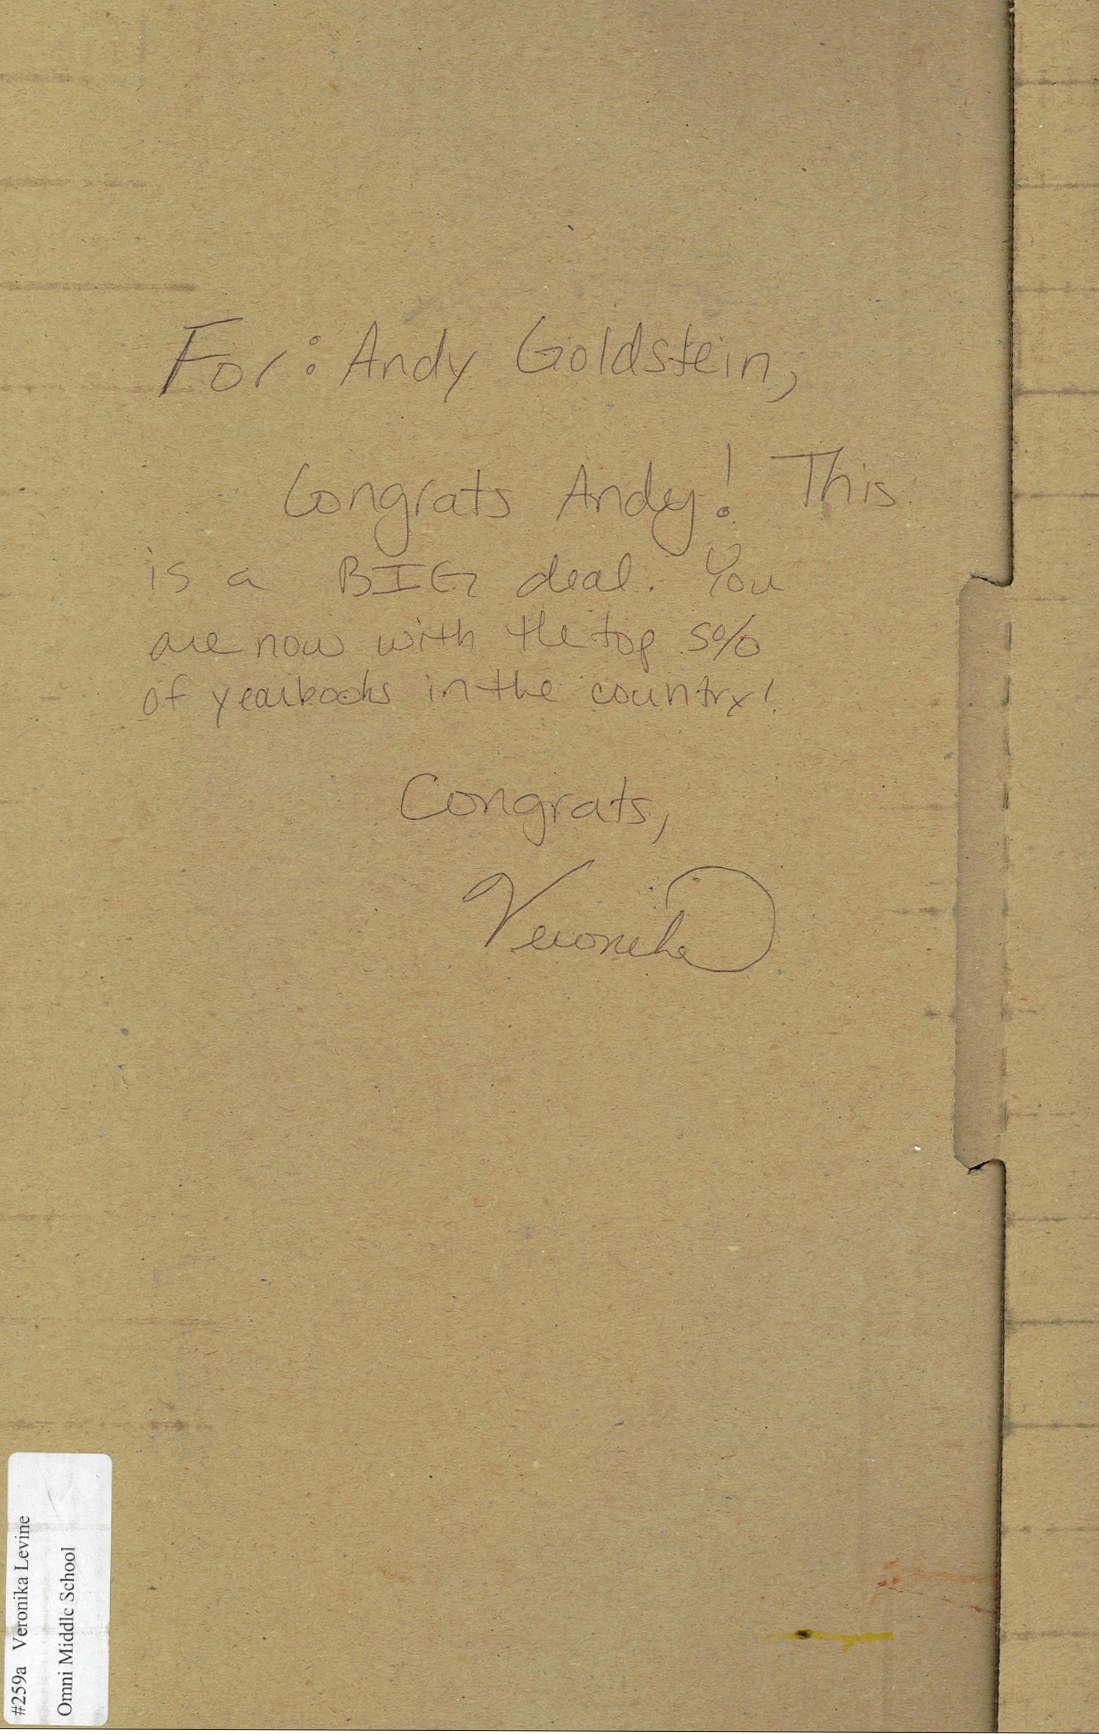 For: Andy Goldstein,
Congrats Andy! This
is a BIG deal. You
are now with the top 5%
of yearbooks in the country!
Congrats,
Veronika
#259a Veronika Levine
Omni Middle School